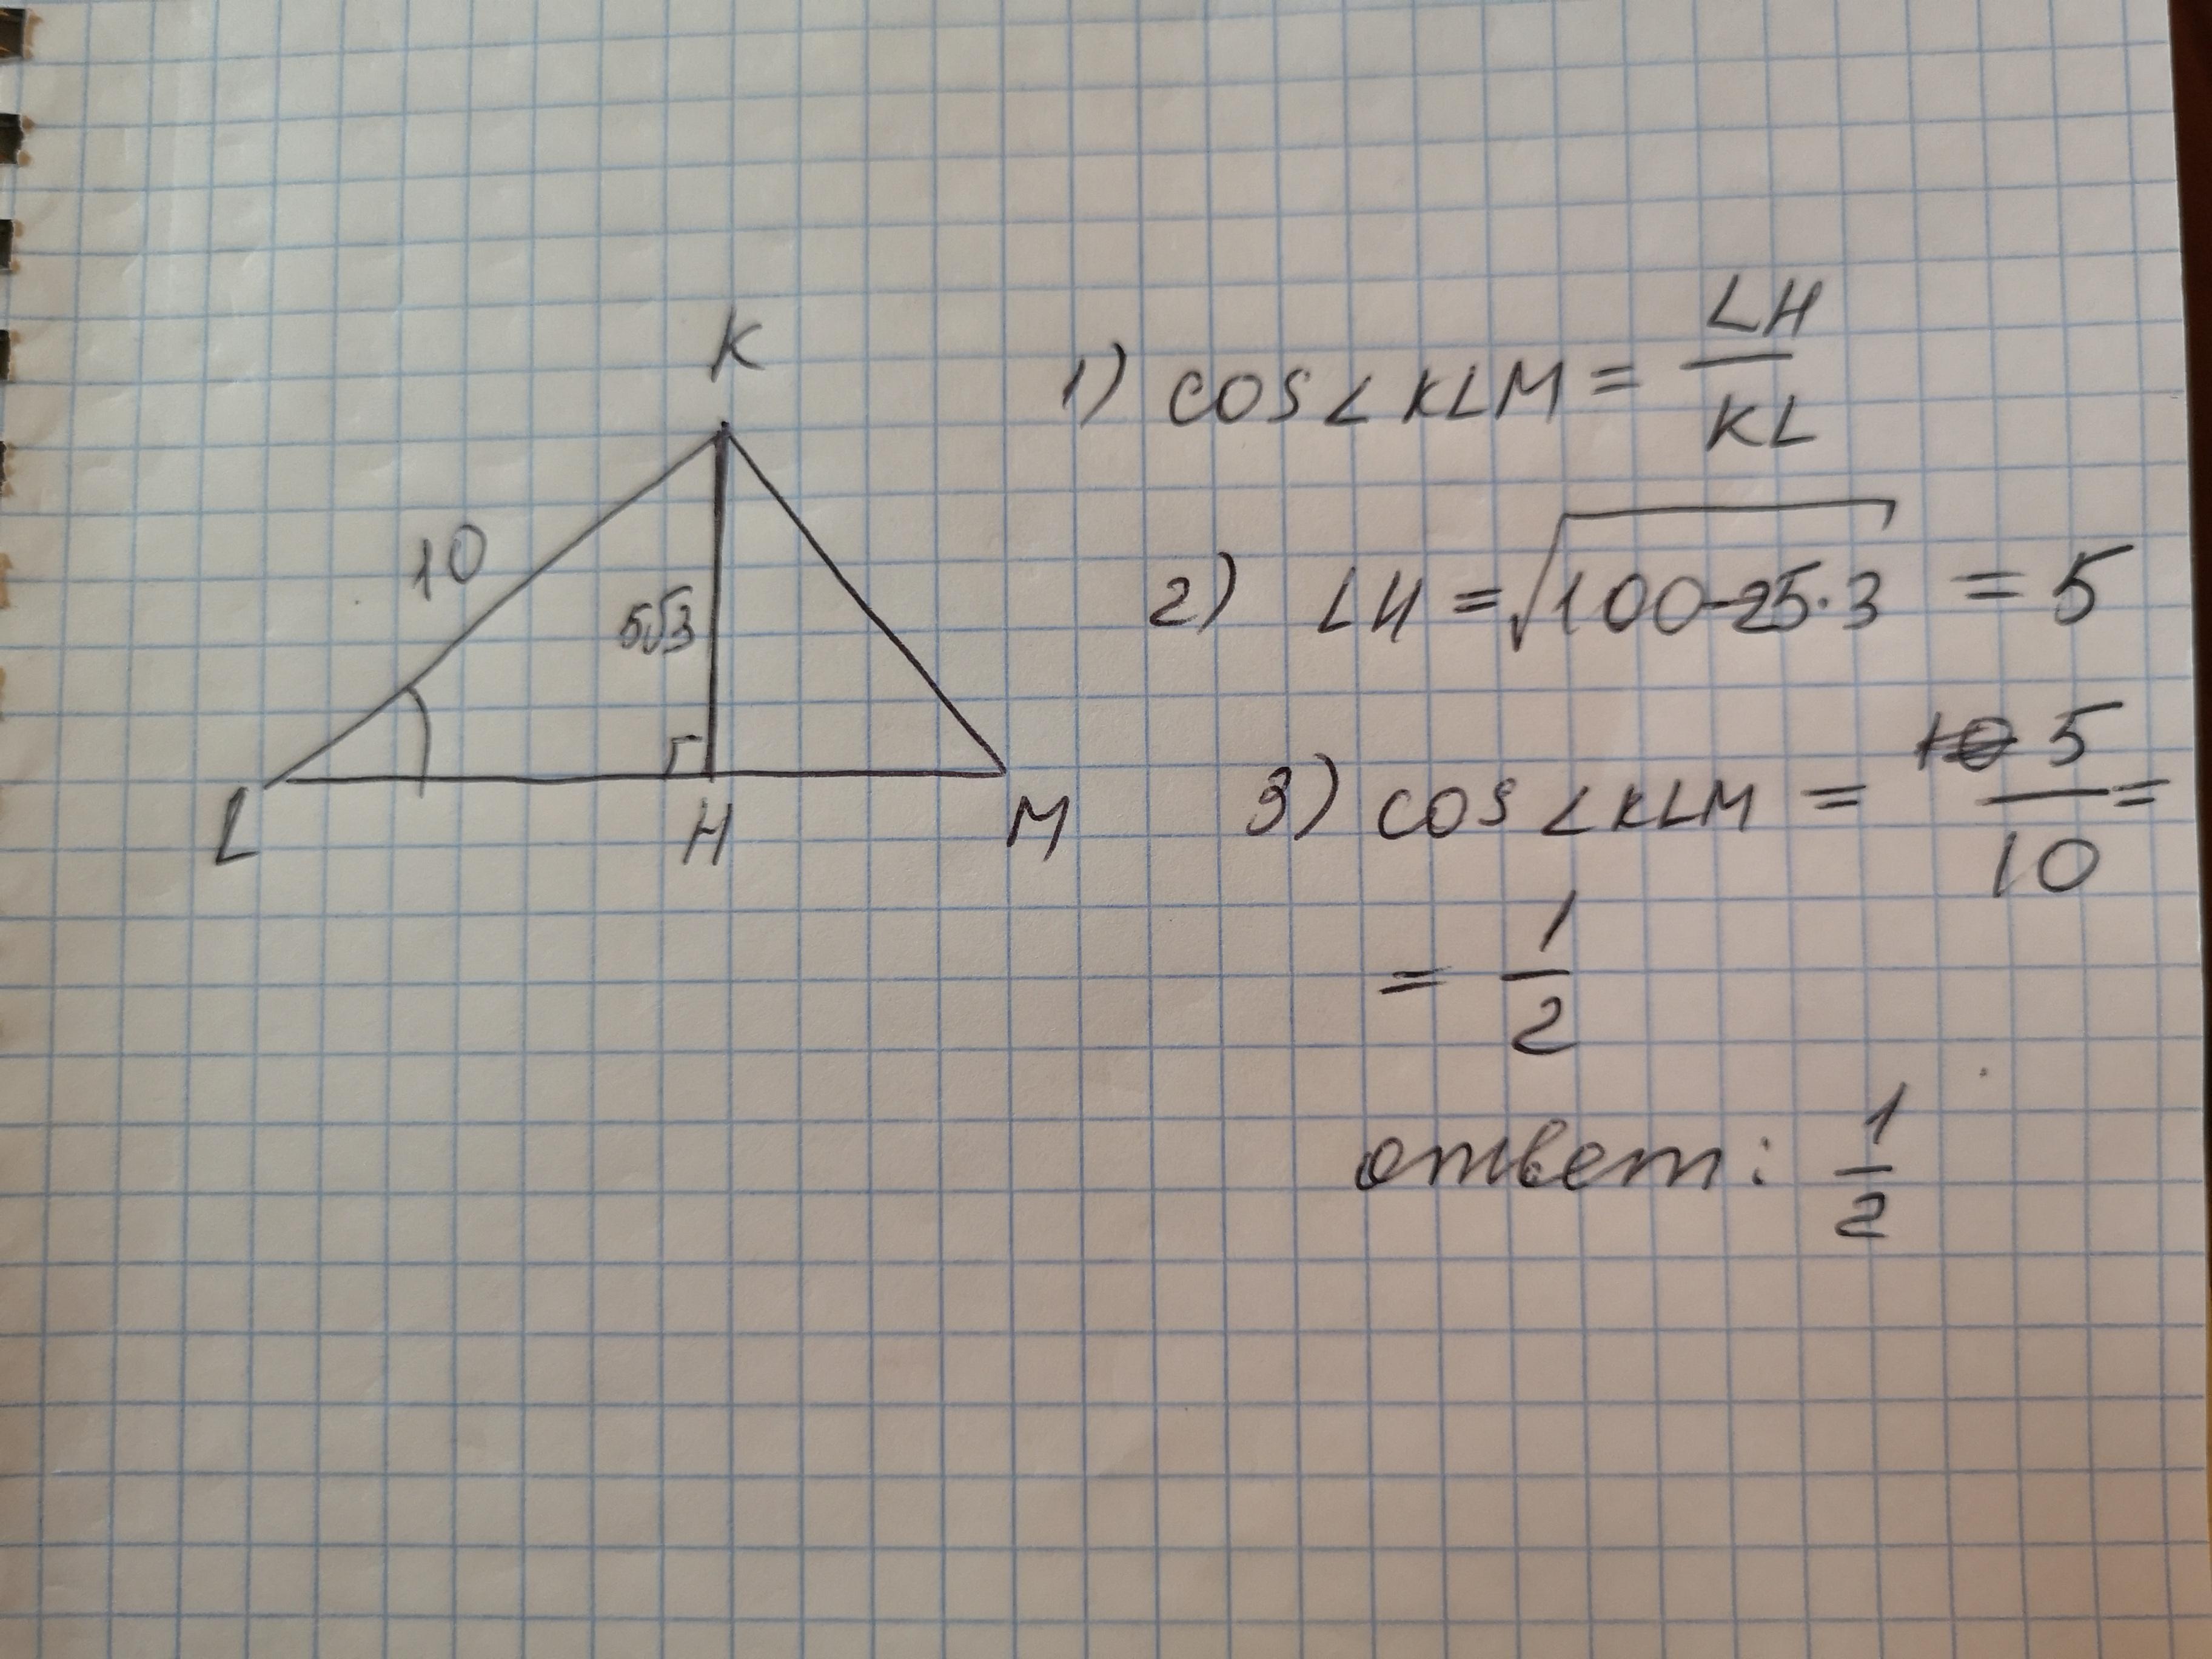 K
10
5√3
L
H
M
1) cos∠KLM = LH/KL
2) LH = √(100-25·3) = 5
3) cos∠KLM = 5/10 =
= 1/2
ответ: 1/2